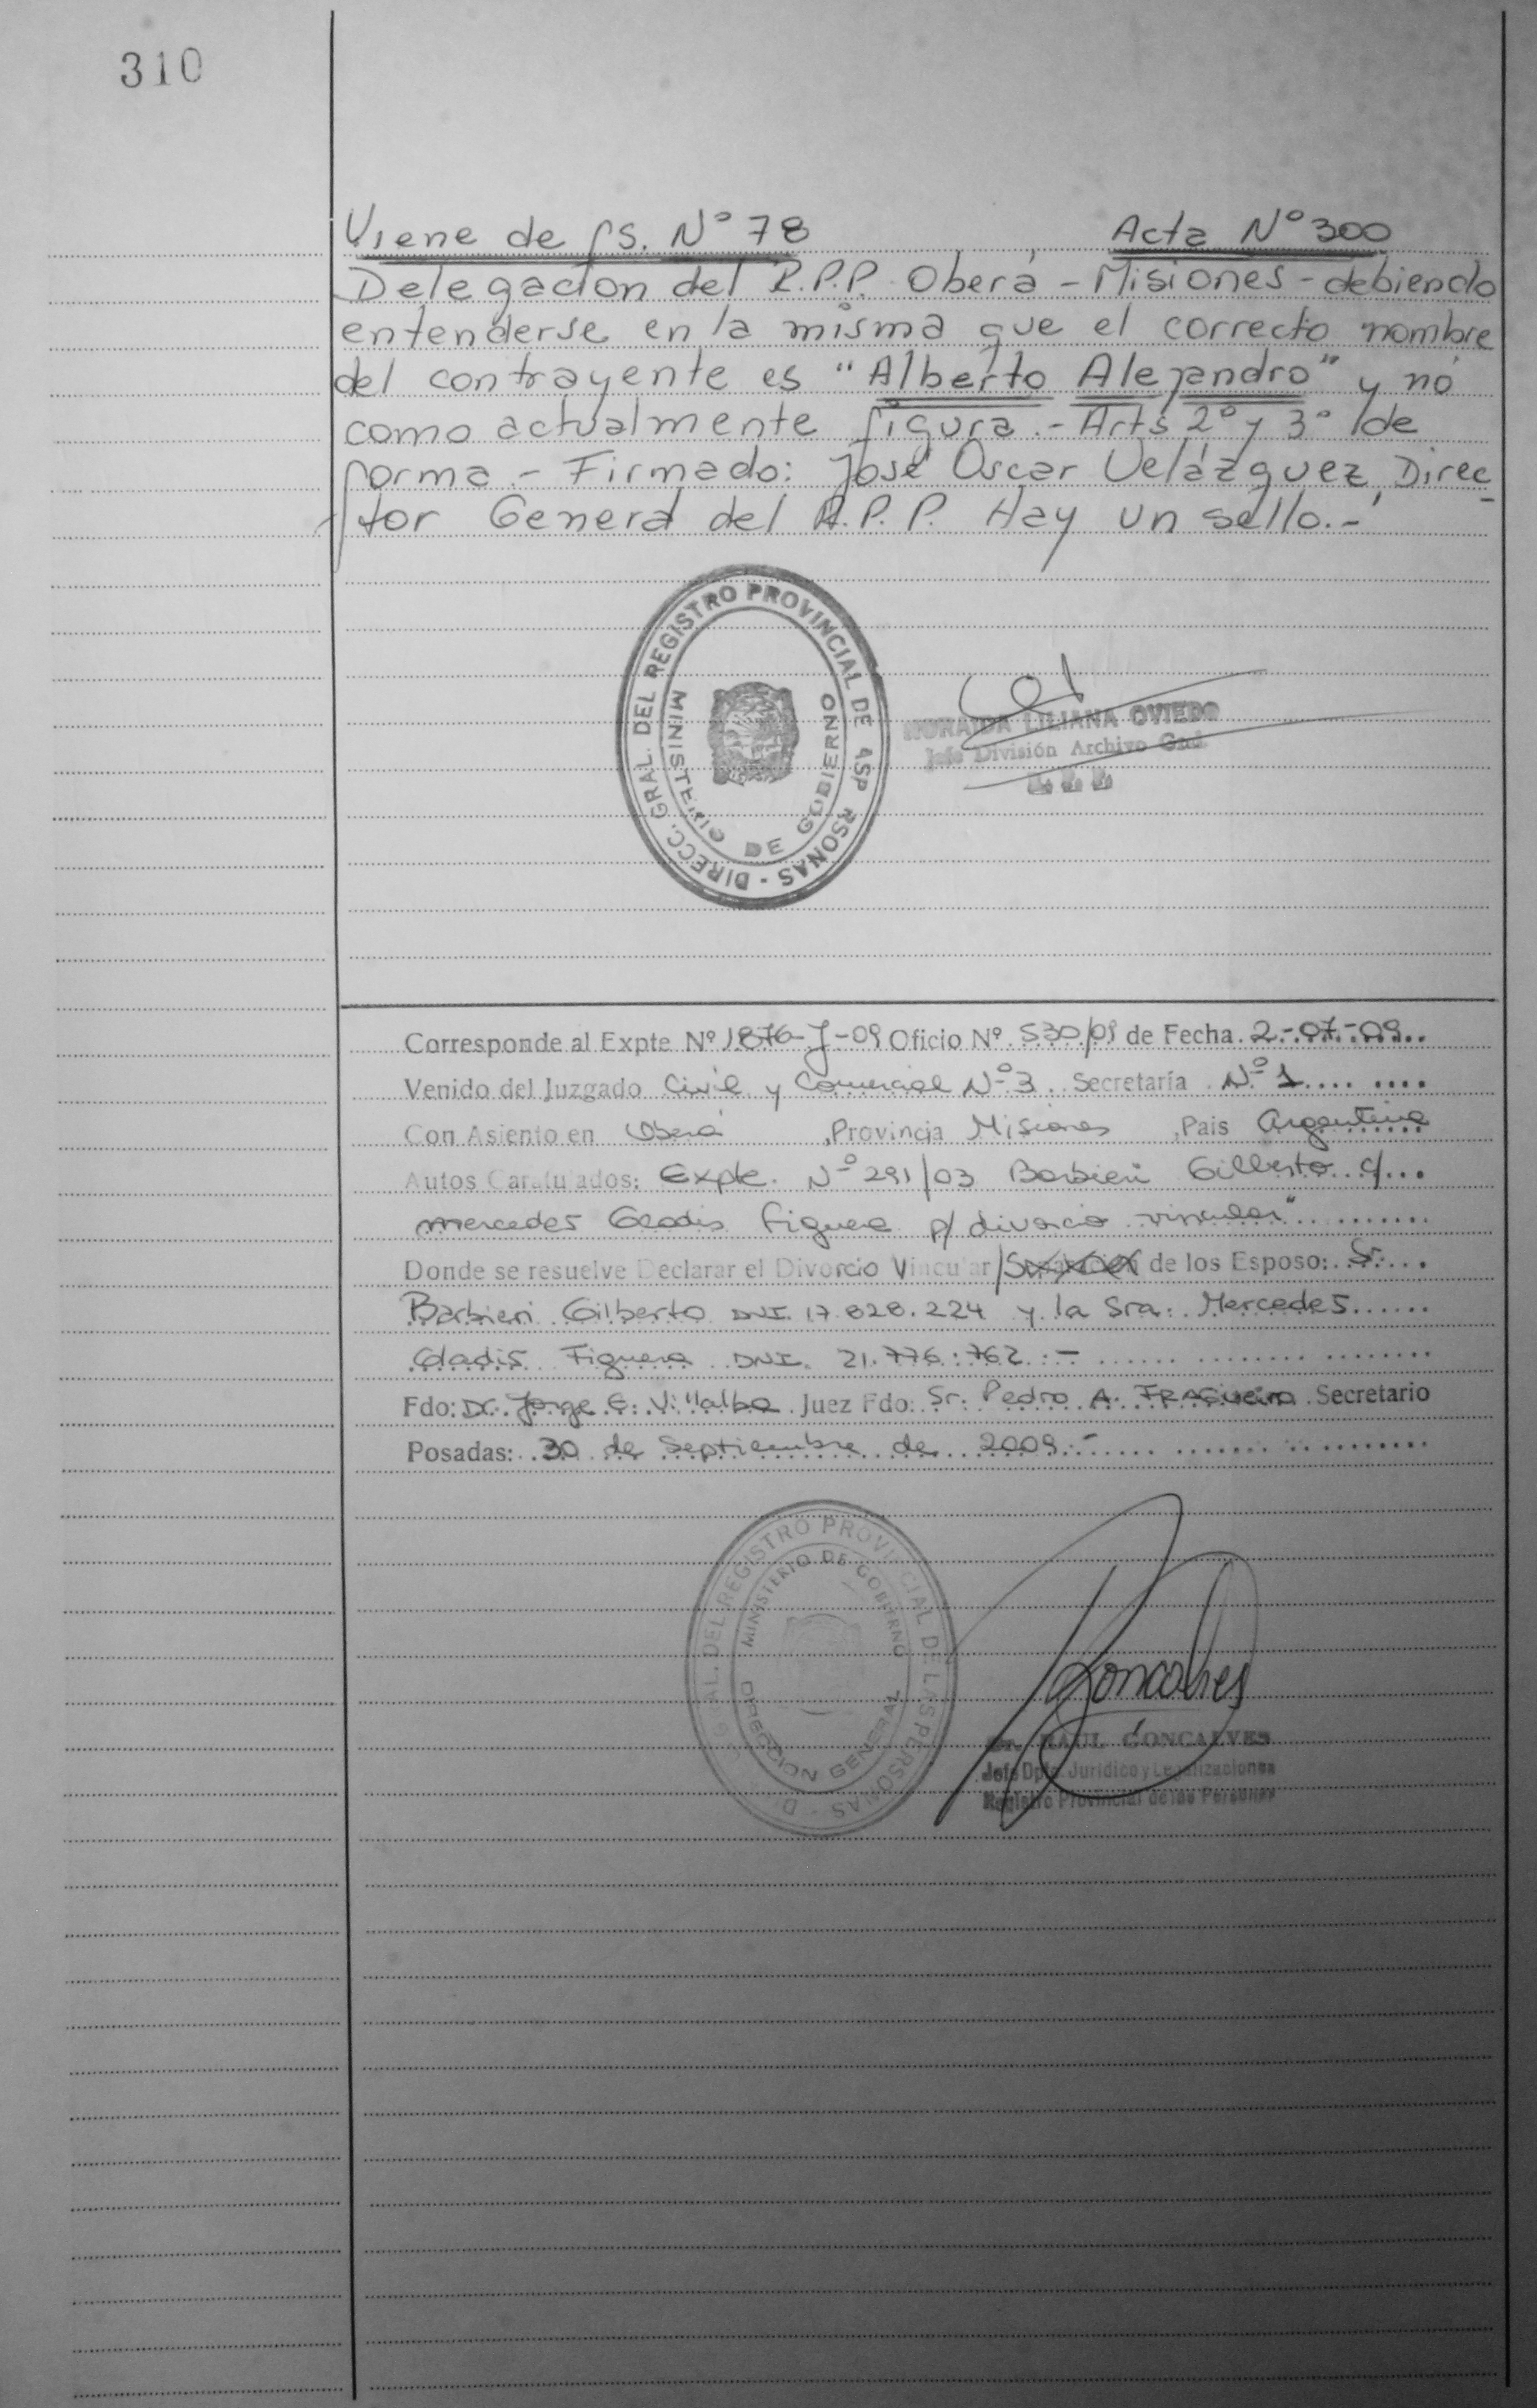 310
Viene de fs. Nº 78 Acta Nº 300
Delegacion del R.P.P. Oberá - Misiones - debiendo
entenderse en la misma que el correcto nombre
del contrayente es "Alberto Alejandro" y no
como actualmente figura.- Arts 2º y 3º de
forma.- Firmado: José Oscar Velázquez, Direc-
tor General del R.P.P. Hay un sello.-
DIRECC. GRAL. DEL REGISTRO PROVINCIAL DE
MINISTERIO DE GOBIERNO
LILIANA OVIEDO
Jefe División Archivo Gral.
R. P. P.
Corresponde al Expte Nº 1876-J-09 Oficio Nº 530/09 de Fecha 2-07-09
Venido del Juzgado Civil y Comercial Nº 3 Secretaría Nº 1
Con Asiento en Oberá, Provincia Misiones, Pais Argentina
Autos Caratulados: Expte. Nº 291/03 Barbieri Gilberto c/
Mercedes Gladis Figuera p/ divorcio vincular"
Donde se resuelve Declarar el Divorcio Vincular / de los Esposo: Sr.
Barbieri Gilberto DNI. 17.828.224 y la Sra: Mercedes
Gladis Figuera DNI. 21.776.762.-
Fdo: Dr. Jorge E. Villalba Juez Fdo: Sr. Pedro A. Fragueiro Secretario
Posadas: 30 de Septiembre de 2009.-
GRAL. DEL REGISTRO PROVINCIAL DE LAS PERSONAS
MINISTERIO DE GOBIERNO
DIRECCION GENERAL
Goncalves
Dr. RAUL GONCALVES
Jefe Dpto. Jurídico y Legalizaciones
Registro Provincial de las Personas